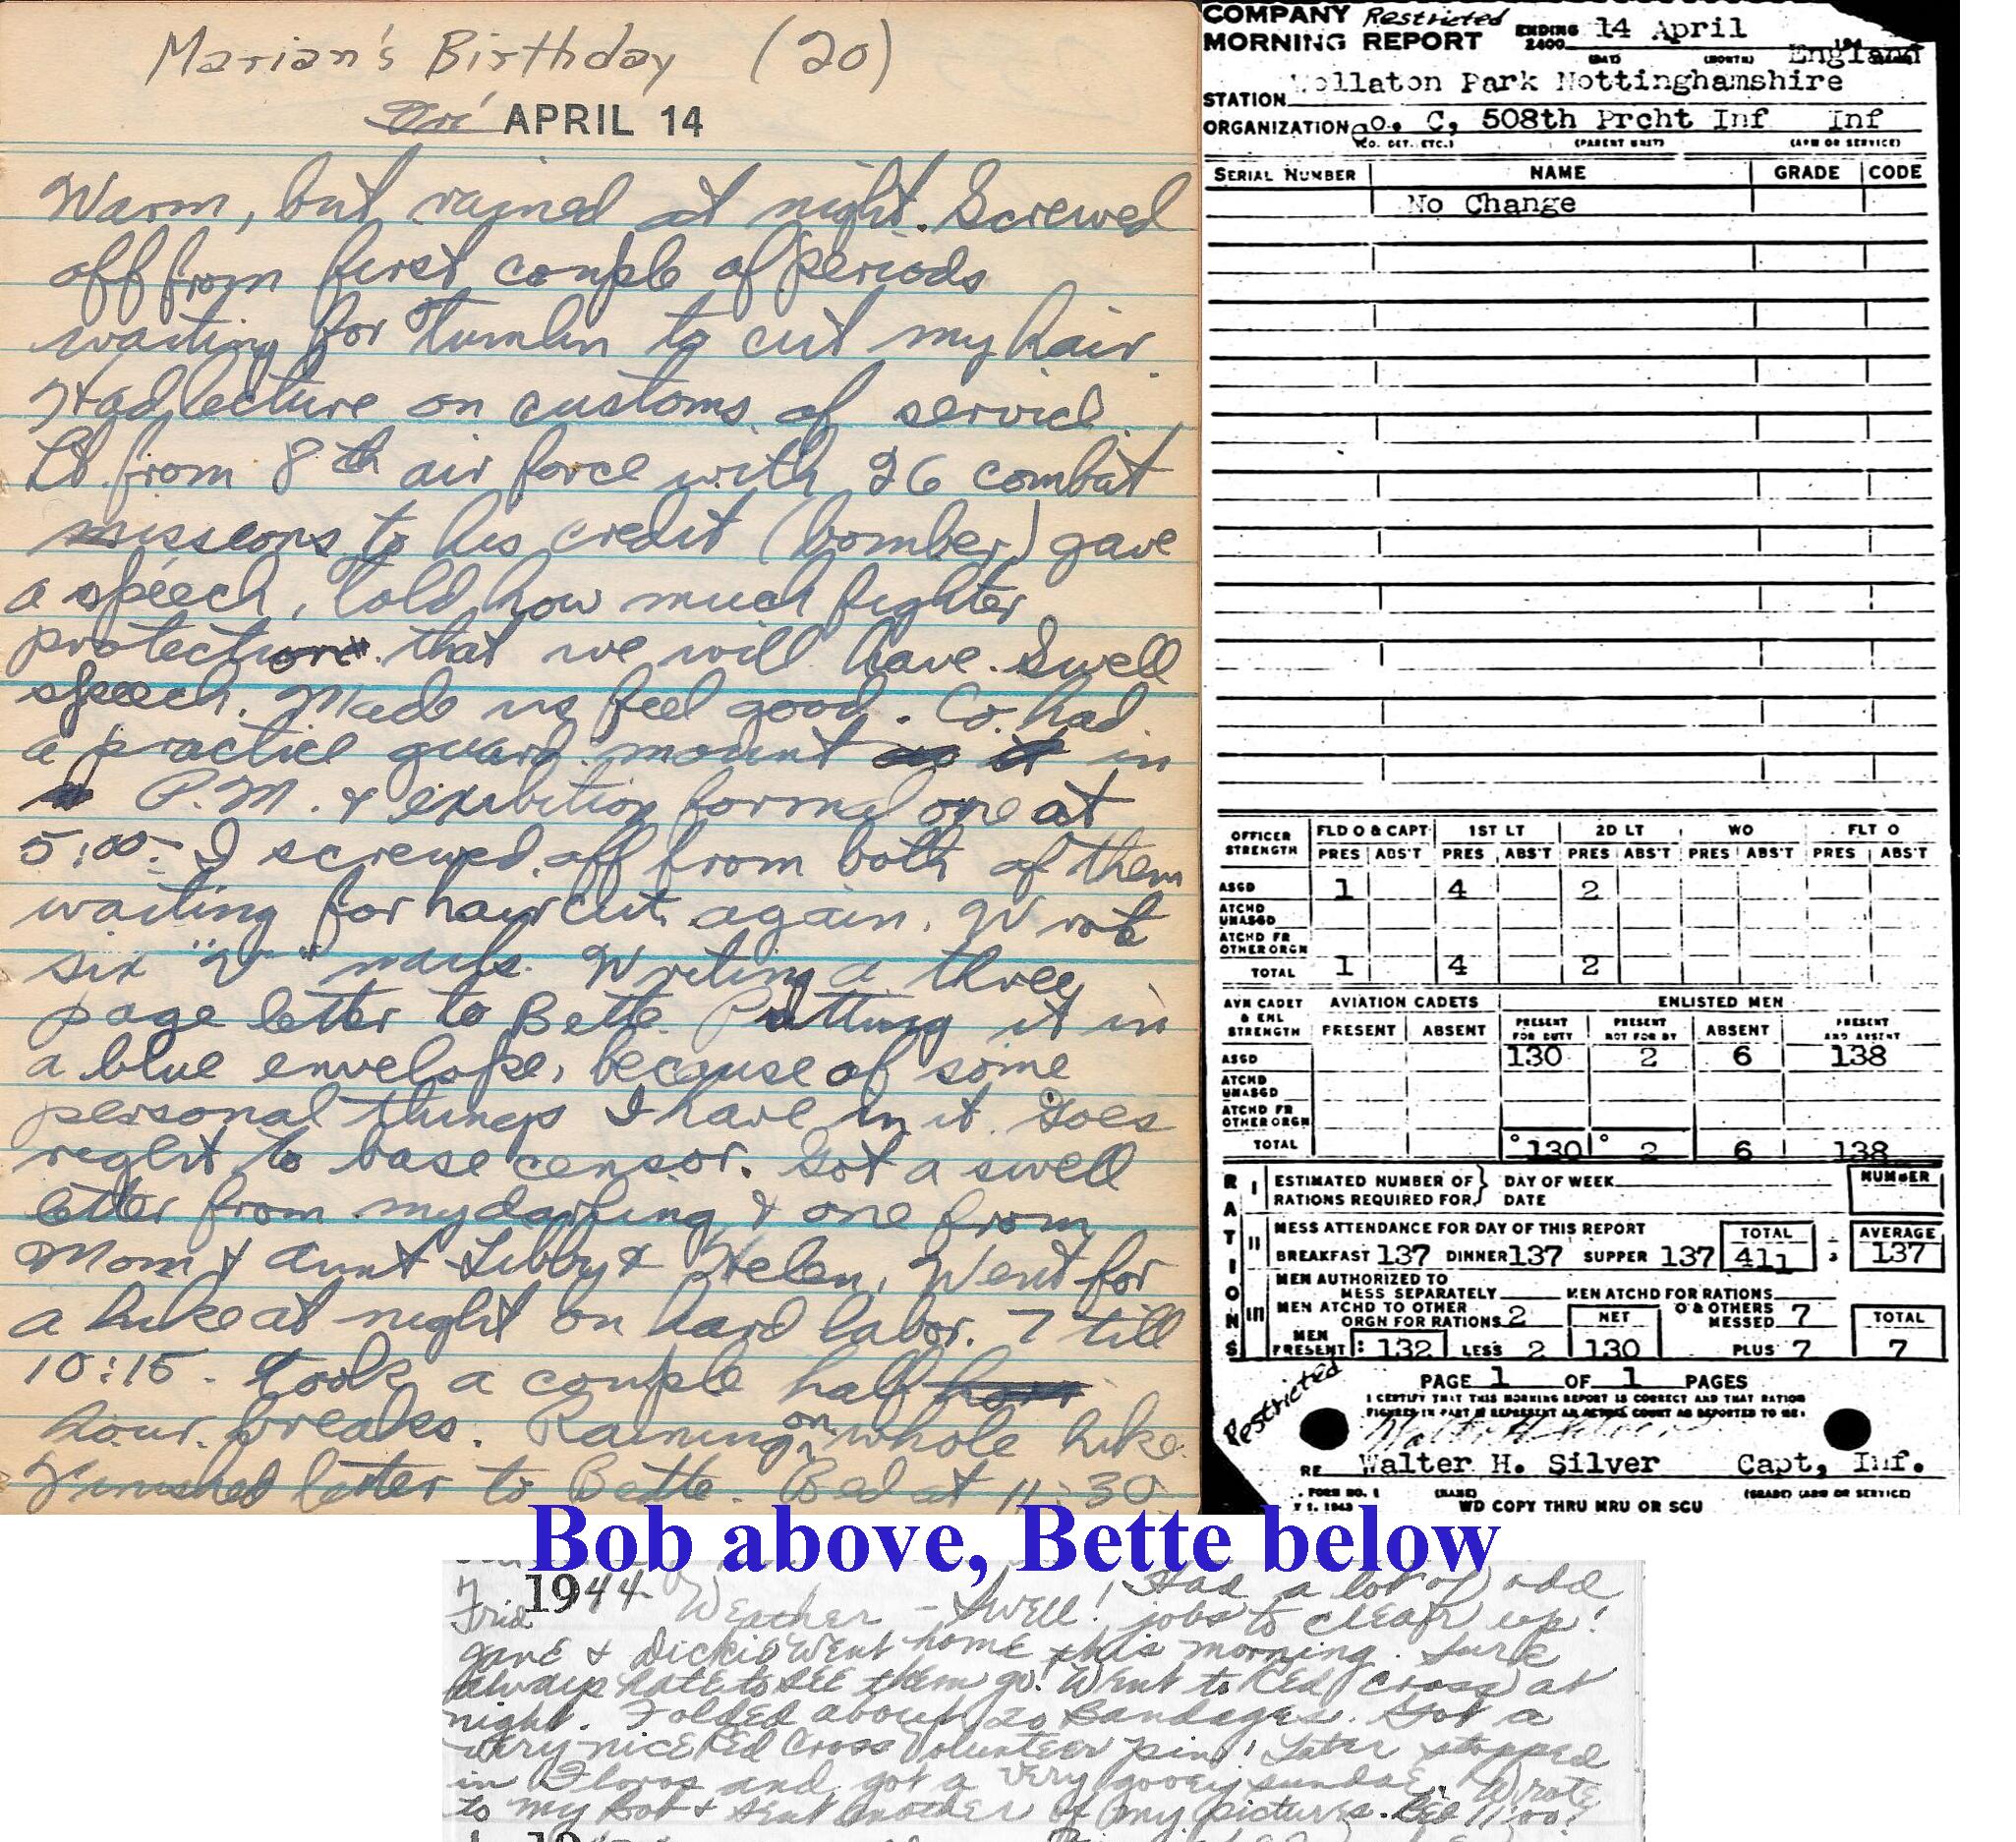 Marian's Birthday (20)
Fri APRIL 14
Warm, but rained at night. Screwed
off from first couple of periods
waiting for Tumlin to cut my hair.
Had lecture on customs of service.
Lt. from 8th air force with 26 combat
missions to his credit (bomber) gave
a speech, told how much fighter
protection that we will have. Swell
speech. Made us feel good. Co. had
a practice guard mount in
P.M. & exibition formal one at
5:00. I screwed off from both of them
waiting for haircut again. Wrote
six "V" mails. Writing a three
page letter to Bette. Putting it in
a blue envelope, because of some
personal things I have in it. Goes
right to base censor. Got a swell
letter from my darling & one from
Mom & Aunt Libby & Helen. Went for
a hike at night on hard labor. 7 till
10:15. Took a couple half
hour breaks. Raining on whole hike.
Finished letter to Bette. Bed at 11:30
COMPANY Restricted ENDING 14 April
MORNING REPORT 2400 (DAY) (MONTH) 194 England
STATION Wollaton Park Nottinghamshire
ORGANIZATION Co. C, 508th Prcht Inf Inf
(CO. DET. ETC.) (PARENT UNIT) (ARM OR SERVICE)
SERIAL NUMBER NAME GRADE CODE
No Change
OFFICER STRENGTH FLD O & CAPT 1ST LT 2D LT WO FLT O
PRES ABS'T PRES ABS'T PRES ABS'T PRES ABS'T PRES ABS'T
ASGD 1 4 2
ATCHD UNASGD
ATCHD FR OTHER ORGN
TOTAL 1 4 2
AVN CADET & ENL STRENGTH AVIATION CADETS ENLISTED MEN
PRESENT ABSENT PRESENT FOR DUTY PRESENT NOT FOR DY ABSENT PRESENT AND ABSENT
ASGD 130 2 6 138
ATCHD UNASGD
ATCHD FR OTHER ORGN
TOTAL 130 2 6 138
RATIONS
I ESTIMATED NUMBER OF RATIONS REQUIRED FOR DAY OF WEEK DATE NUMBER
II MESS ATTENDANCE FOR DAY OF THIS REPORT TOTAL AVERAGE
BREAKFAST 137 DINNER 137 SUPPER 137 411 3 137
III MEN AUTHORIZED TO MESS SEPARATELY MEN ATCHD FOR RATIONS
MEN ATCHD TO OTHER ORGN FOR RATIONS 2 NET O & OTHERS MESSED 7 TOTAL
MEN PRESENT: 132 LESS 2 130 PLUS 7 7
PAGE 1 OF 1 PAGES
Restricted
I CERTIFY THAT THIS MORNING REPORT IS CORRECT AND THAT RATION
FIGURES IN PART II REPRESENT AN ACTUAL COUNT AS REPORTED TO ME:
Walter H Silver
Walter H. Silver Capt, Inf.
FORM NO. 1 (NAME) (GRADE) (ARM OR SERVICE)
1, 1943 WD COPY THRU MRU OR SCU
Bob above, Bette below
1944 Had a lot of odd
Frid Weather - Swell! jobs to clear up!
Jane & Dickie went home this morning. Sure
always hate to see them go! Went to Red Cross at
night. Folded about 20 Bandages. Got a
very nice Red Cross Volunteer pin! Later stopped
in Floros and got a very gooey sundae. Wrote
to my Bob & sent another of my pictures. Bed 11:00!
19